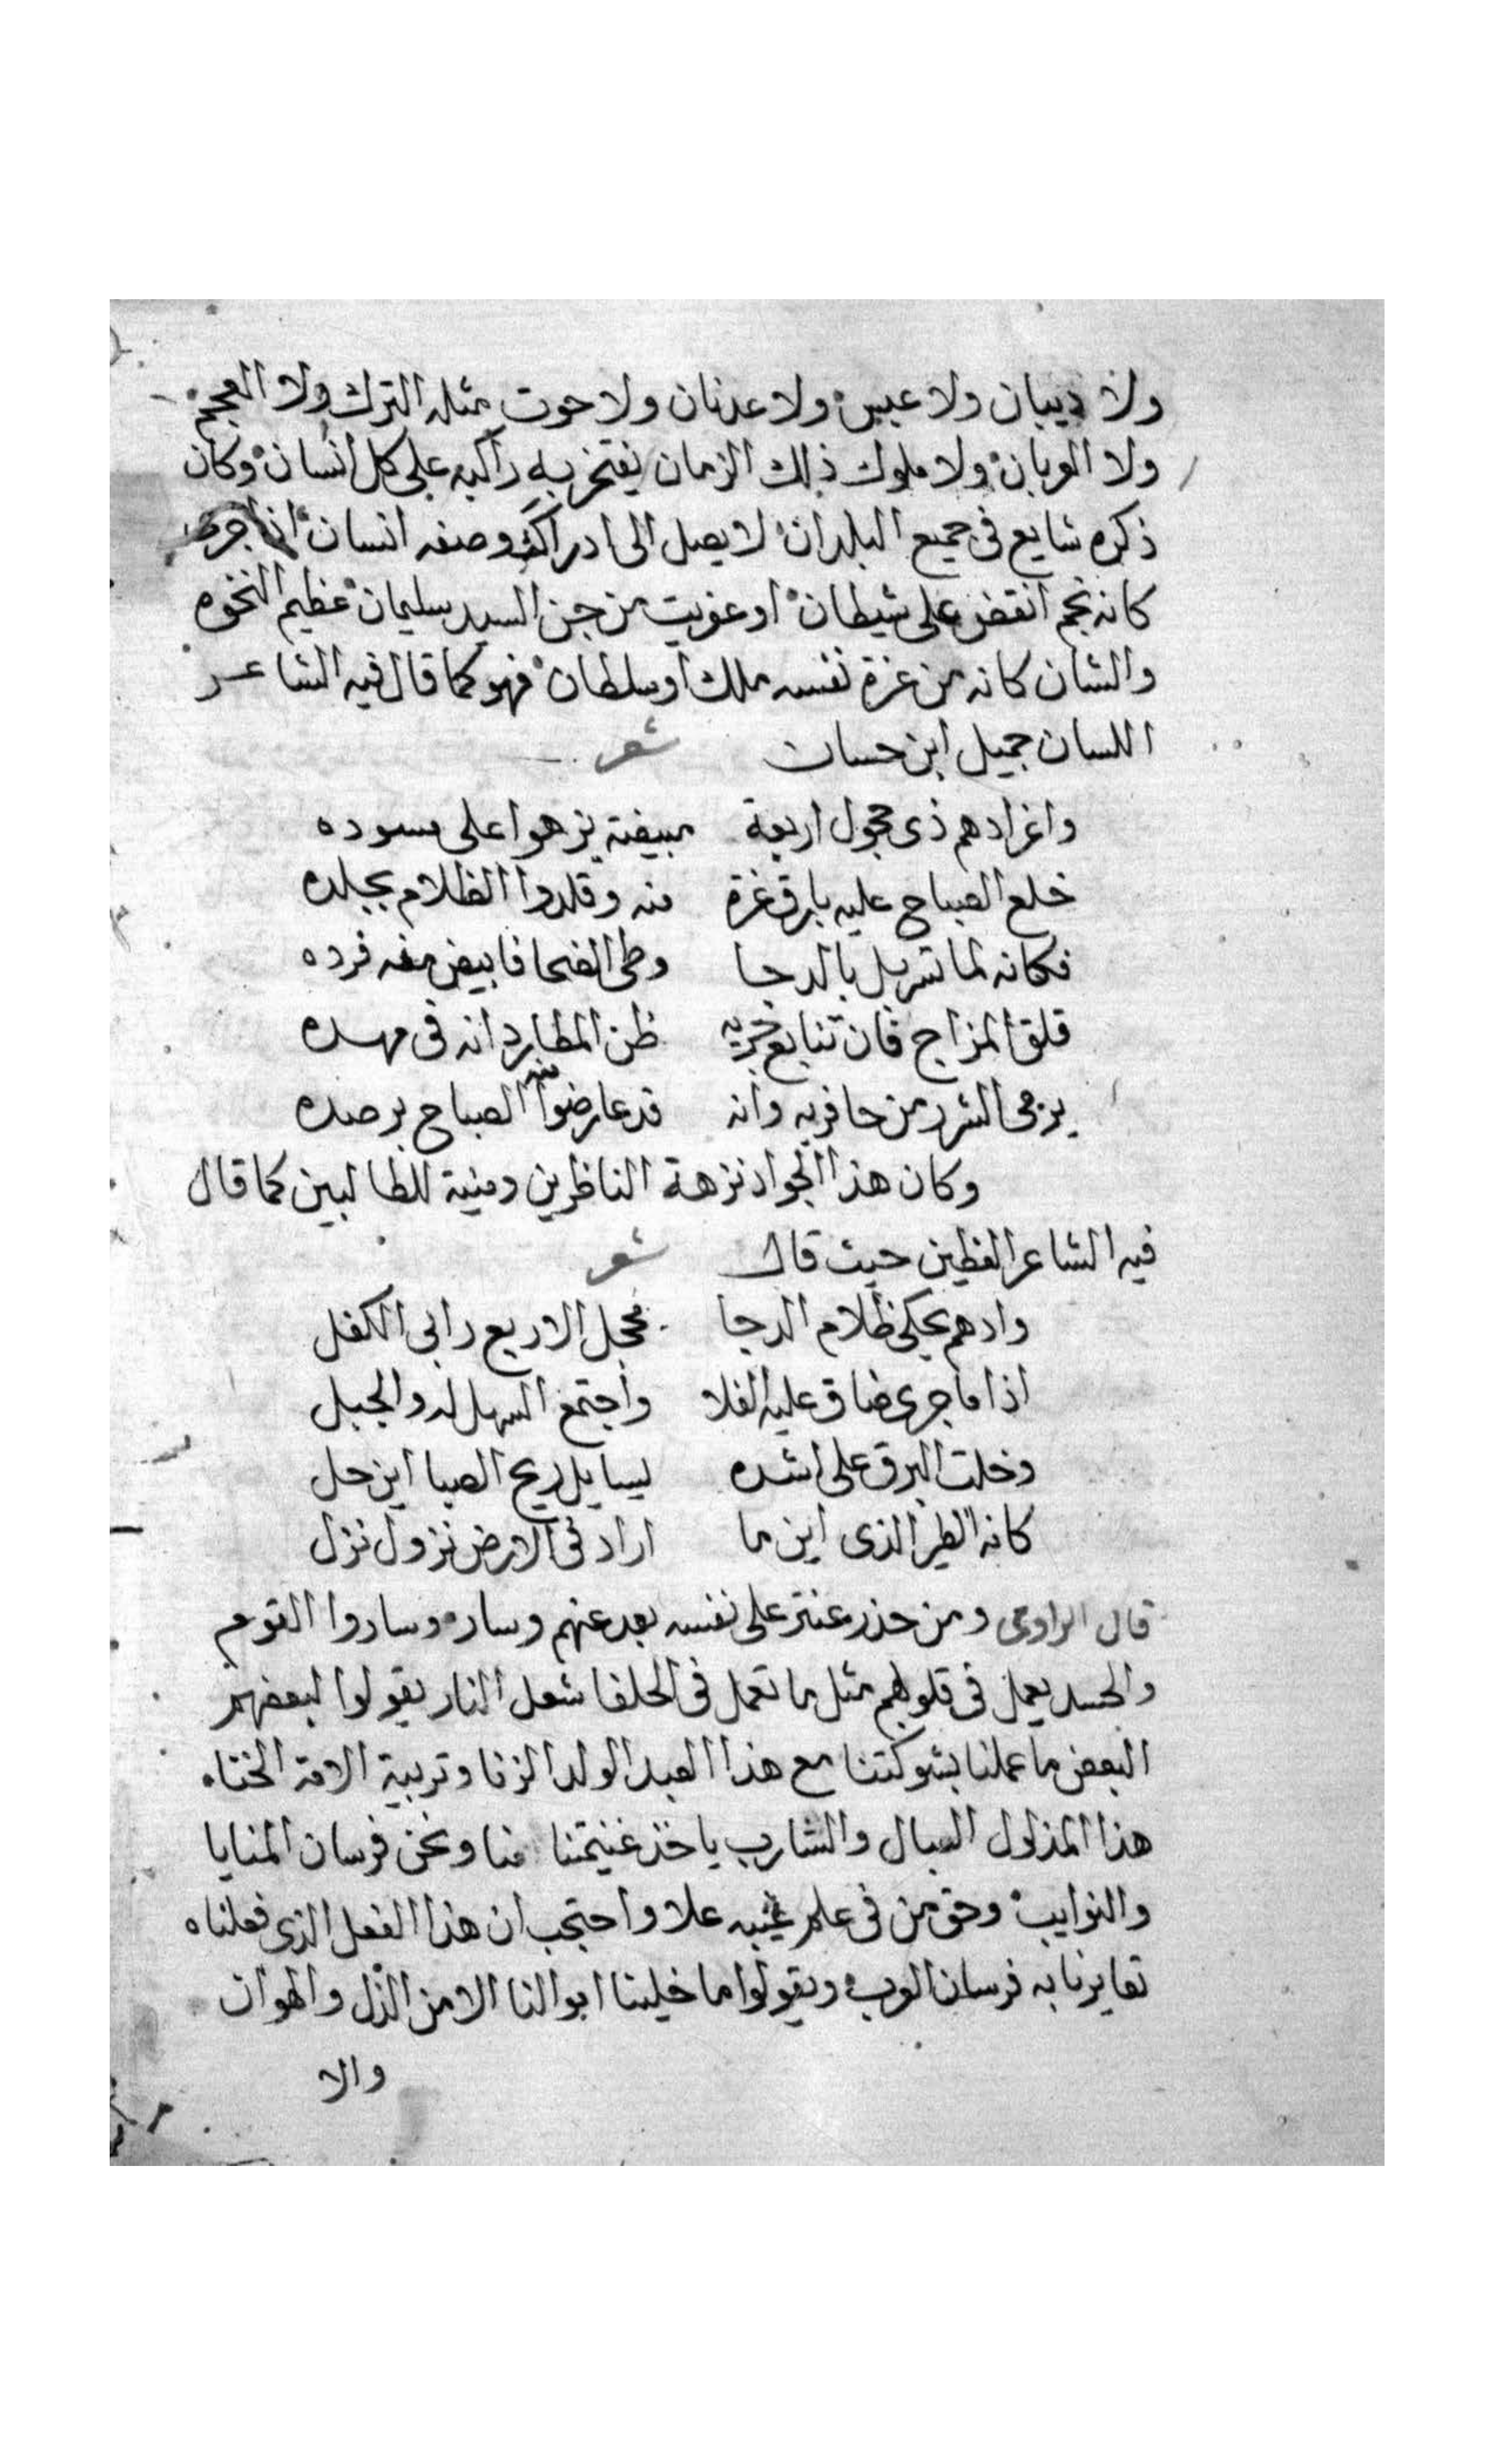 ولا ديبان ولا عبس ولا عدنان ولا حوت مثله الترك ولا العجم
ولا العربان ولا ملوك ذلك الزمان يفتخر به راكبه على كل انسان وكان
ذكره شايع فى جميع البلدان لا يصل الى ادراك وصفه انسان اذا جرى
كانه نجم انقض على شيطان او عفريت من جن السيد سليمان عظيم النخوه
والشان كانه من عزة نفسه ملك او سلطان فهو كما قال فيه الشاعر
اللسان جميل ابن حسان شعر
واغر ادهم ذى حجول اربعة مبيضة يزهوا على مسوده
خلع الصباح عليه بارق غرة منه وقلدوا الظلام بجلده
فكانه لما تسربل بالدجا وطى الضحا فابيض منه فرده
قلق المزاج فان تتابع جريه ظن المطارد انه فى مهده
يرمى الشرر من حافريه وانه قد عارضوا منه الصباح برصده
وكان هذا الجواد نزهة الناظرين ومنية للطالبين كما قال
فيه الشاعر الفطين حيث قال شعر
وادهم يحكى ظلام الدجا محجل الاربع رابى الكفل
اذا ما جرى ضاق عليه الفلا واجتمع السهل له والجبل
وخلت البرق على اشده يسايل ريح الصبا اين حل
كانه الطير الذى اين ما اراد فى الارض نزول نزل
قال الراوى ومن حذر عنتر على نفسه بعد عنهم وسار وساروا القوم
والحسد يعمل فى قلوبهم مثل ما تعمل فى الحلفا شعل النار يقولوا لبعضهم
البعض ما عملنا بشوكتنا مع هذا العبد الولد الزنا وتربية الامة الخناه
هذا المذلول السبال والشارب ياخذ غنيمتنا منا ونحن فرسان المنايا
والنوايب وحق من فى علم غيبه علا واحتجب ان هذا الفعل الذى فعلناه
تعايرنا به فرسان العرب ويقولوا ما خلينا الا من الذل والهوان
والا